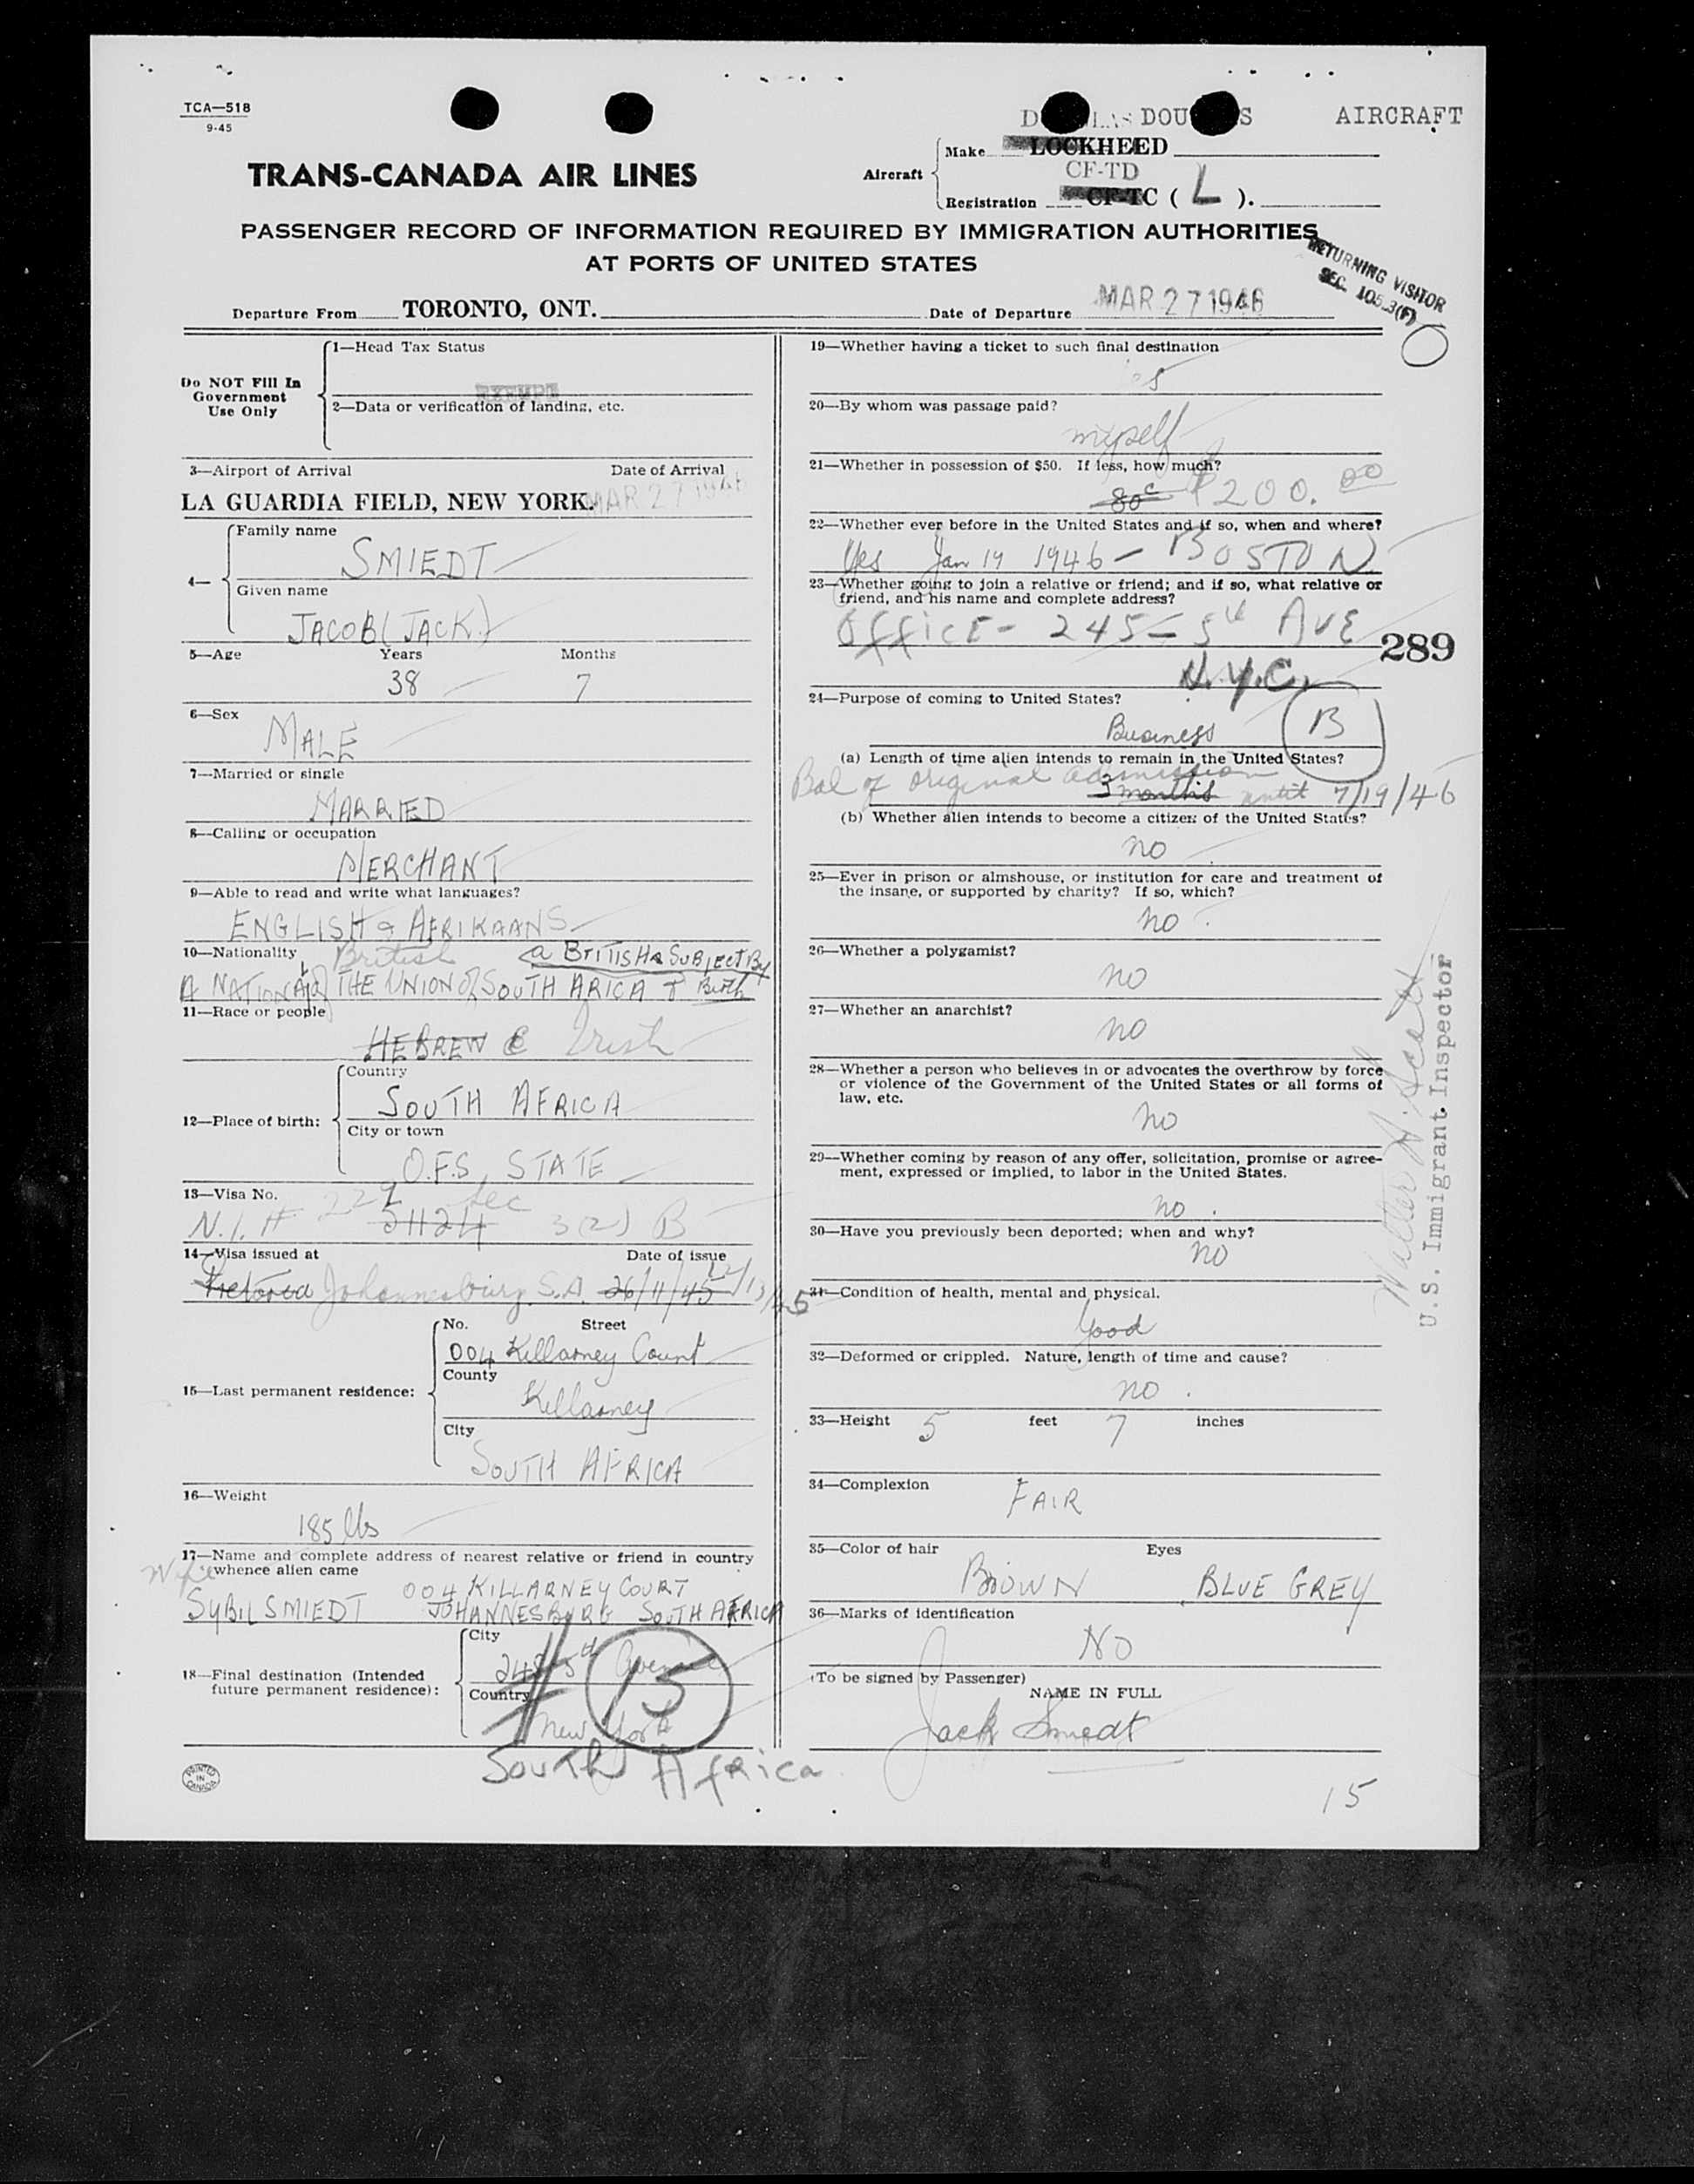 TCA—518
9-45
DOUGLAS DOUGLAS AIRCRAFT
Aircraft
Make LOCKHEED
CF-TD
Registration CF-TC ( L ).
TRANS-CANADA AIR LINES
PASSENGER RECORD OF INFORMATION REQUIRED BY IMMIGRATION AUTHORITIES
AT PORTS OF UNITED STATES
RETURNING VISITOR
SEC. 105.3(F)
Departure From TORONTO, ONT. Date of Departure MAR 27 1946
Do NOT Fill In
Government
Use Only
1—Head Tax Status
EXEMPT
2—Data or verification of landing, etc.
3—Airport of Arrival Date of Arrival
LA GUARDIA FIELD, NEW YORK. MAR 27 1946
4—
Family name
SMIEDT
Given name
JACOB (JACK)
5—Age Years Months
38 7
6—Sex
MALE
7—Married or single
MARRIED
8—Calling or occupation
MERCHANT
9—Able to read and write what languages?
ENGLISH & AFRIKAANS
10—Nationality British a BRITISH SUBJECT By
A NATIONAL of THE UNION of SOUTH ARICA & Birth
11—Race or people
HEBREW Irish
12—Place of birth:
Country
SOUTH AFRICA
City or town
O.F.S. STATE
13—Visa No. 229 Sec
N.I. # 21124 3(2) B
14—Visa issued at Date of issue
Pretoria Johannesburg S.A. 26/11/45 12/13/45
15—Last permanent residence:
No. Street
004 Killarney Court
County
Killarney
City
SOUTH AFRICA
16—Weight
185 lbs
17—Name and complete address of nearest relative or friend in country
Wife whence alien came
004 KILLARNEY COURT
SYBIL SMIEDT JOHANNESBURG SOUTH AFRICA
18—Final destination (Intended
future permanent residence):
City
245 5th Avenue
Country
New York
# 15
South Africa
PRINTED
IN
CANADA
19—Whether having a ticket to such final destination
yes
20—By whom was passage paid?
myself
21—Whether in possession of $50. If less, how much?
80c $200.00
22—Whether ever before in the United States and if so, when and where?
Yes Jan 19 1946 – BOSTON
23—Whether going to join a relative or friend; and if so, what relative or
friend, and his name and complete address?
OFFICE – 245 – 5th AVE
289
N.Y.C.
24—Purpose of coming to United States?
Business B
(a) Length of time alien intends to remain in the United States?
Bal of original admission
3 months until 7/19/46
(b) Whether alien intends to become a citizen of the United States?
no
25—Ever in prison or almshouse, or institution for care and treatment of
the insane, or supported by charity? If so, which?
no.
26—Whether a polygamist?
no
27—Whether an anarchist?
no
28—Whether a person who believes in or advocates the overthrow by force
or violence of the Government of the United States or all forms of
law, etc.
no
29—Whether coming by reason of any offer, solicitation, promise or agree-
ment, expressed or implied, to labor in the United States.
no.
30—Have you previously been deported; when and why?
no
31—Condition of health, mental and physical.
Good
32—Deformed or crippled. Nature, length of time and cause?
no.
33—Height 5 feet 7 inches
34—Complexion
FAIR
35—Color of hair Eyes
BROWN BLUE GREY
36—Marks of identification
NO
(To be signed by Passenger)
NAME IN FULL
Jack Smiedt
15
Walter H.
U.S. Immigrant Inspector